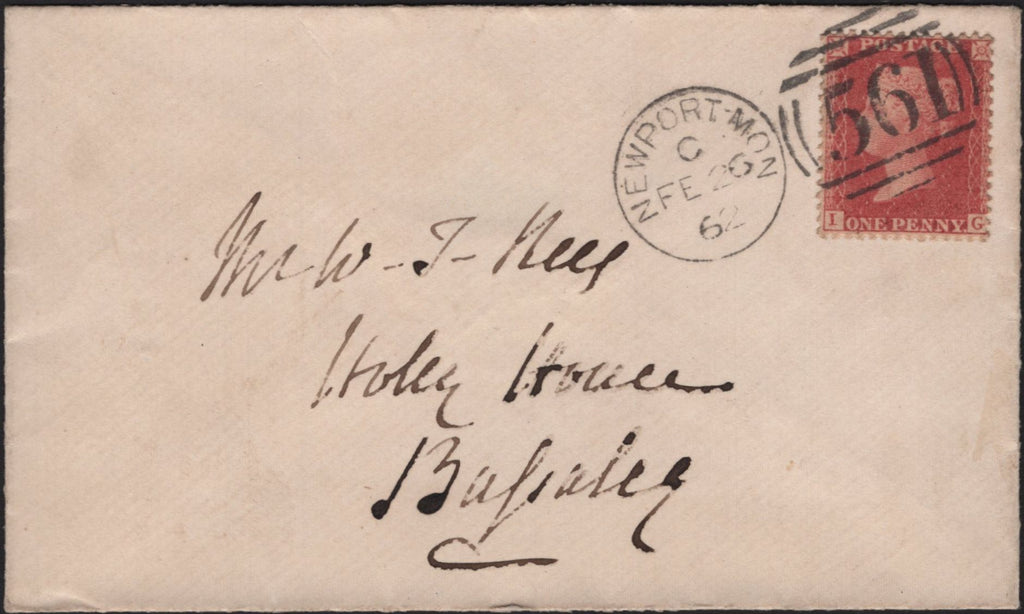 POSTAGE
561
I ONE PENNY. G
NEWPORT-MON
C
FE 26
62
Mr W-T-Rees
Holly House
Bassaleg